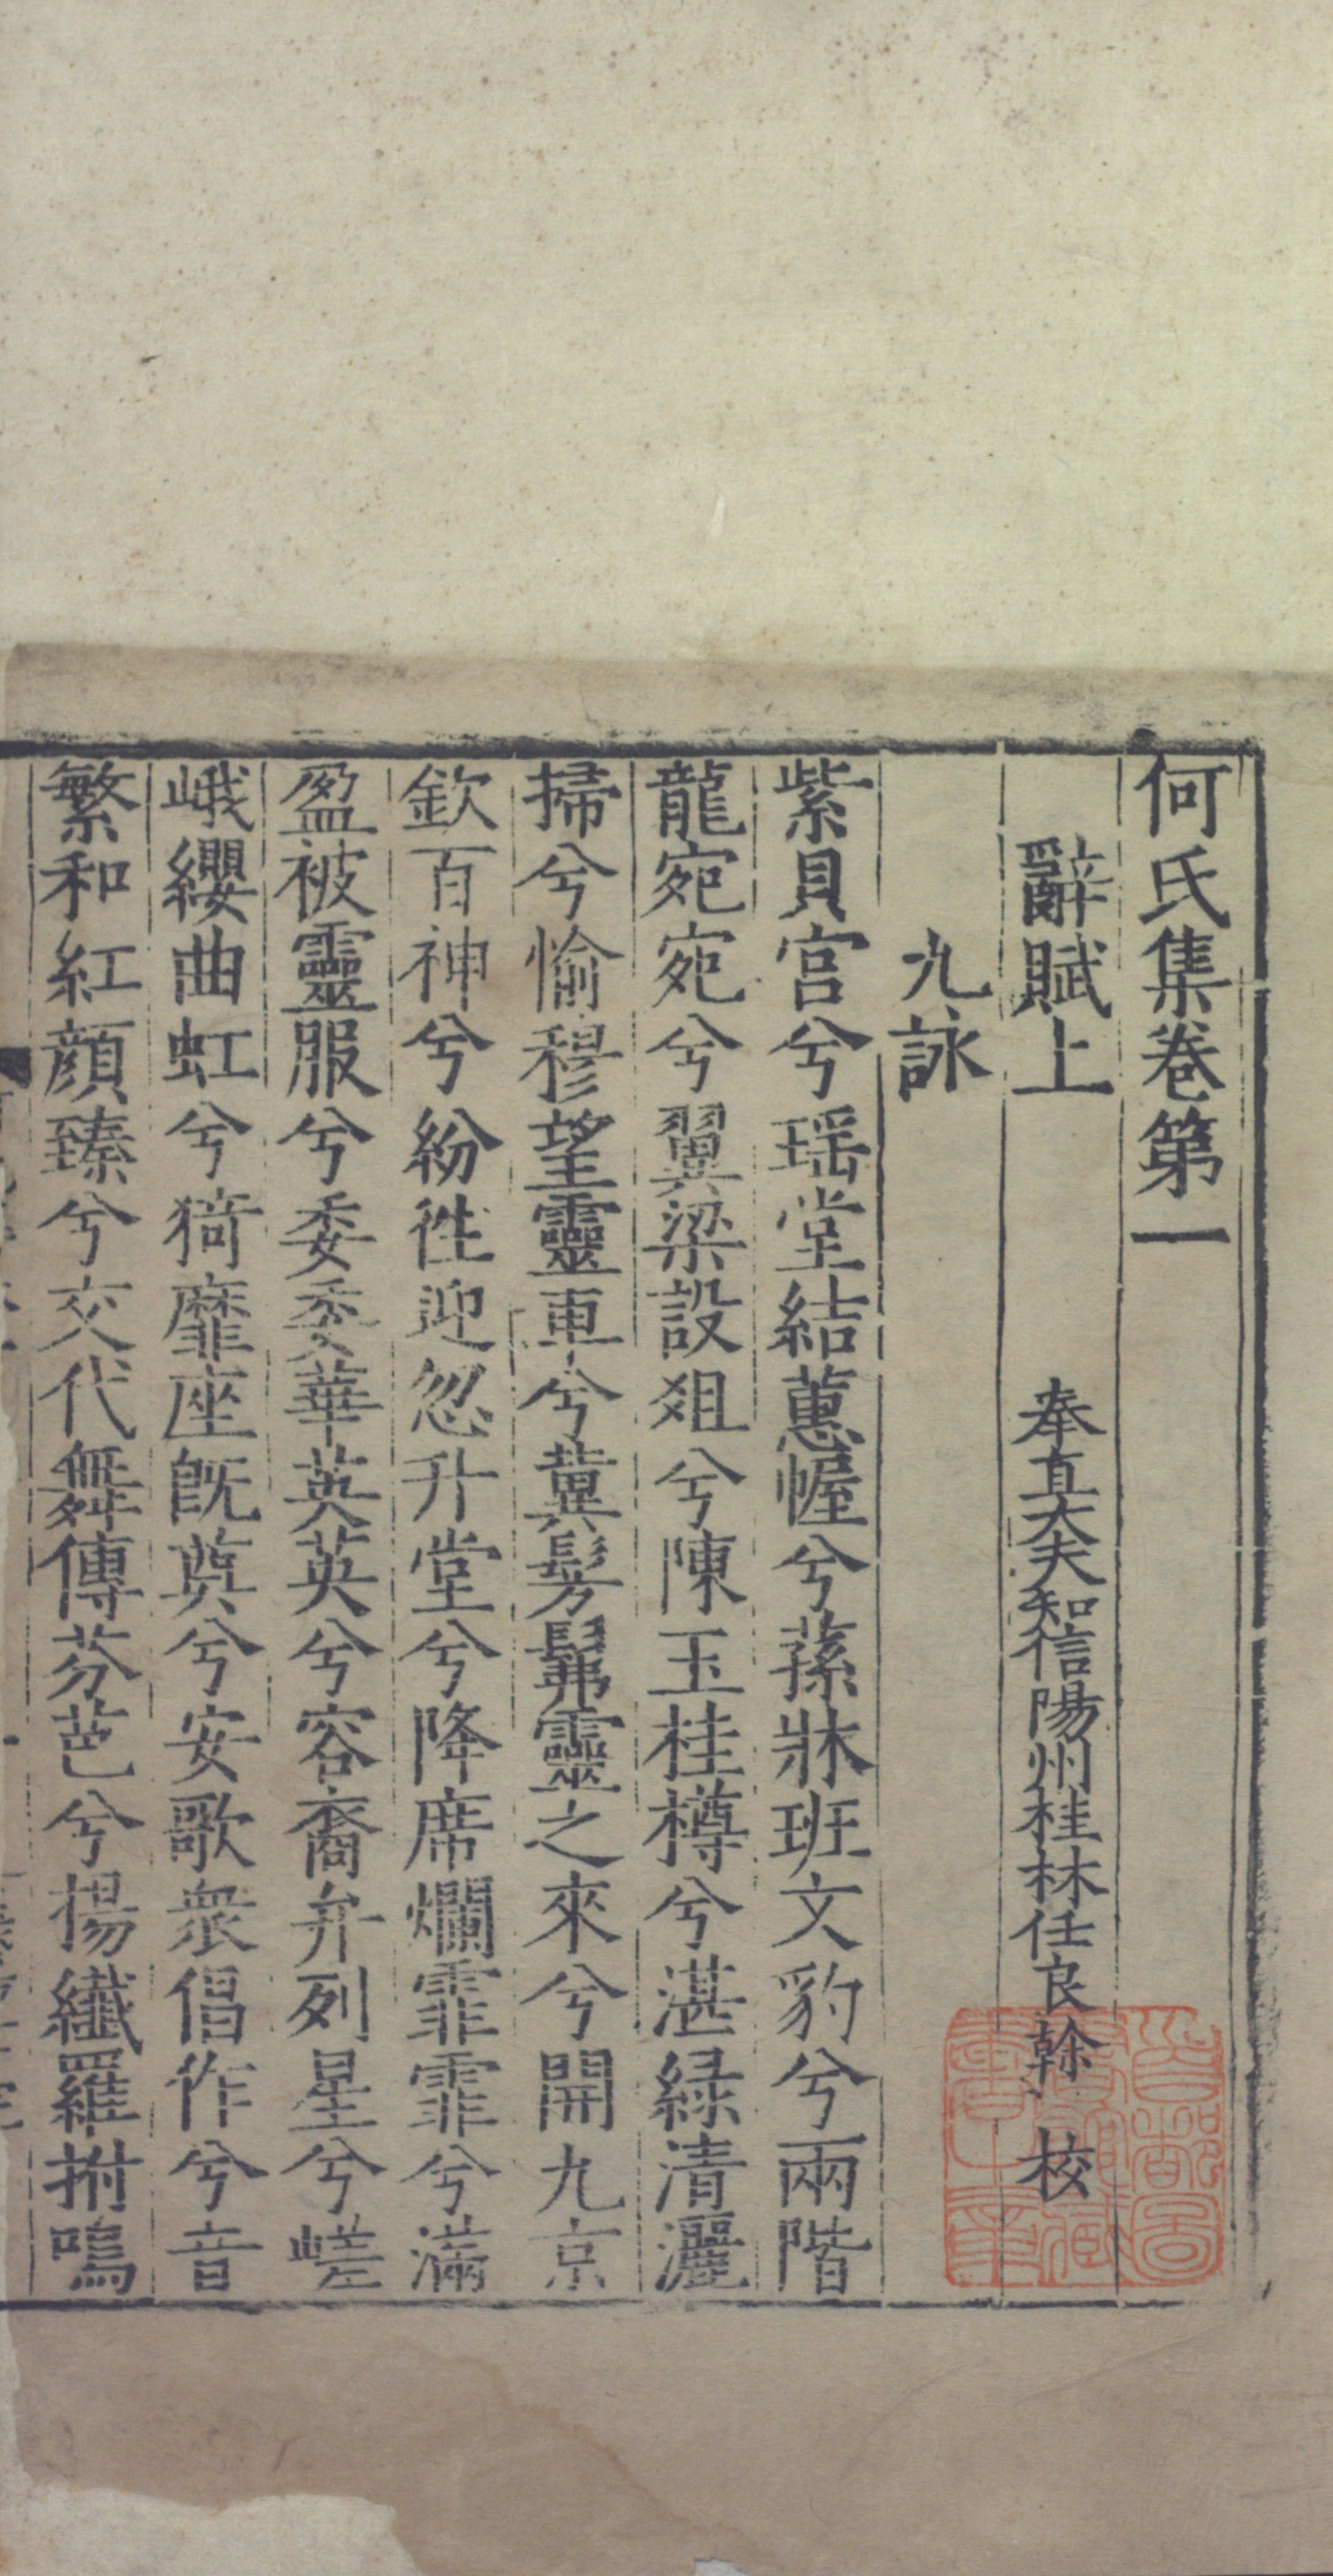 何氏集卷第一
辭賦上
奉直大夫知信陽州桂林任良榦校
九詠
紫貝宮兮瑶堂結蕙幄兮蓀牀班文豹兮兩階
龍宛宛兮翼梁設俎兮陳玉桂樽兮湛緑清灑
掃兮愉穆望靈車兮蕢髣髴靈之來兮開九京
欽百神兮紛徃迎忽升堂兮降席爛霏霏兮滿
盈被靈服兮委委華英英兮容裔弁列星兮嵯
峨纓曲虹兮猗靡座旣奠兮安歌衆倡作兮音
繁和紅顔臻兮交代舞傳芬芭兮揚纖羅拊鳴